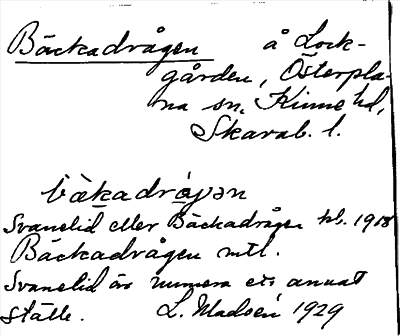 Bäckadrågen å Lock-
gården, Österpla-
na sn, Kinne hd,
Skarab. l.
bäkadråɡən
Svanelid eller Bäckadrågen kb. 1918
Bäckadrågen mtl.
Svanelid är numera ett annat
ställe. L. Madsén 1929